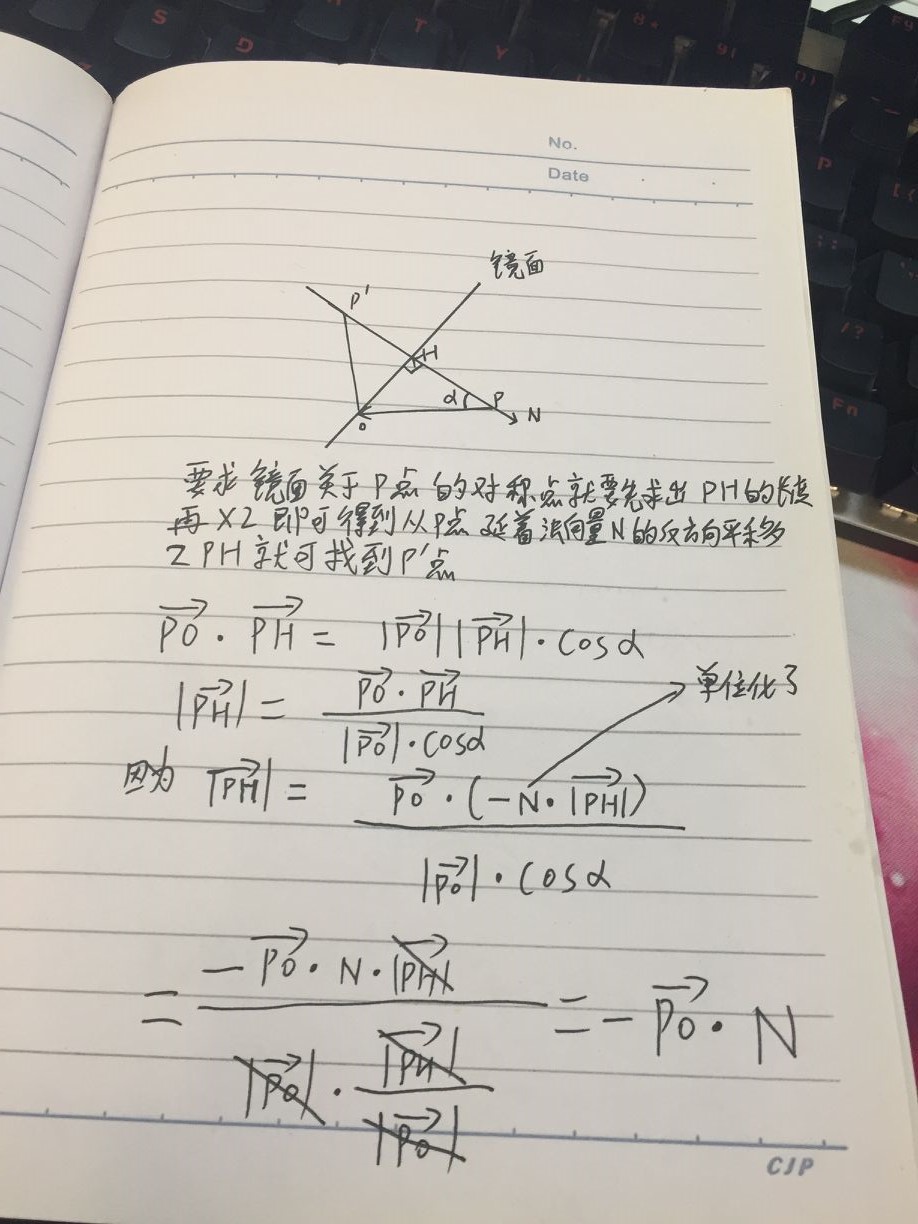 No.
Date
镜面
P'
H
α
P
N
O
要求镜面关于P点的对称点就要先求出PH的长度
再×2即可得到从P点延着法向量N的反方向平移多
2PH就可找到P'点
$\overrightarrow{PO} \cdot \overrightarrow{PH} = |\overrightarrow{PO}| |\overrightarrow{PH}| \cdot \cos\alpha$
$|\overrightarrow{PH}| = \frac{\overrightarrow{PO} \cdot \overrightarrow{PH}}{|\overrightarrow{PO}| \cdot \cos\alpha}$
单位化了
因为 $|\overrightarrow{PH}| = \frac{\overrightarrow{PO} \cdot (-N \cdot |\overrightarrow{PH}|)}{|\overrightarrow{PO}| \cdot \cos\alpha}$
$= \frac{-\overrightarrow{PO} \cdot N \cdot |\overrightarrow{PH}|}{|\overrightarrow{PO}| \cdot \frac{|\overrightarrow{PH}|}{|\overrightarrow{PO}|}} = -\overrightarrow{PO} \cdot N$
CJP